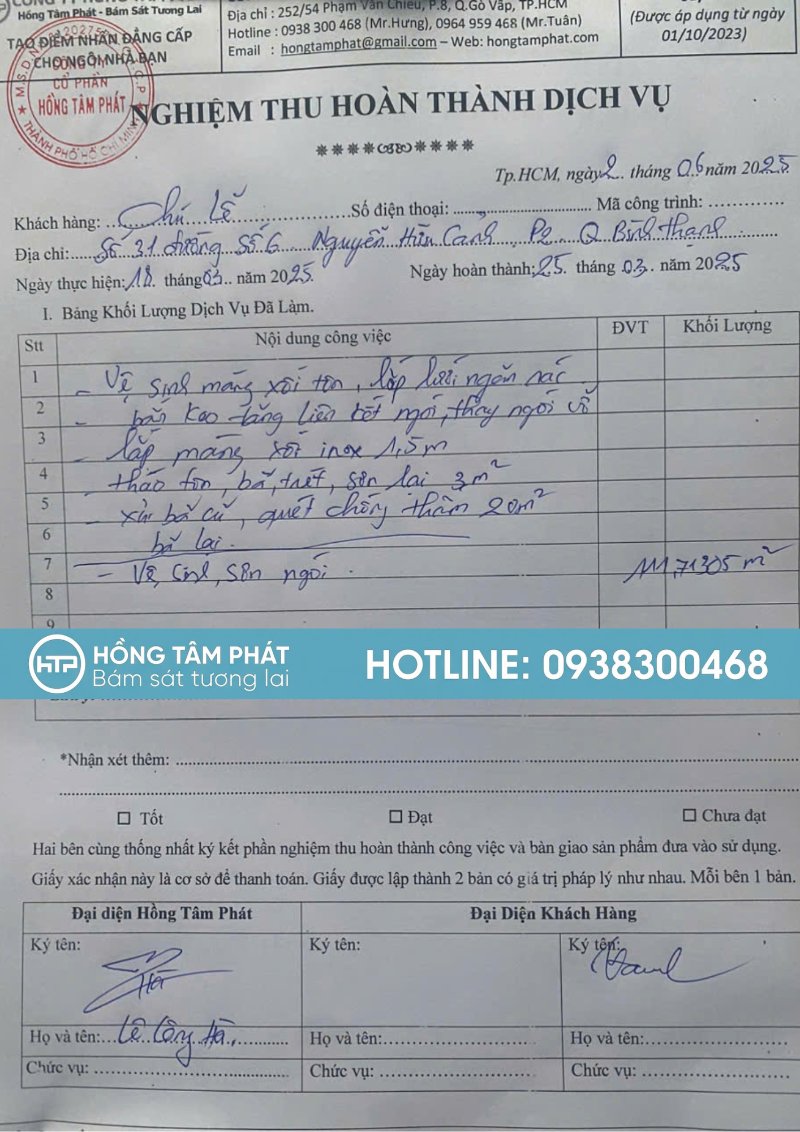 Hồng Tâm Phát - Bám Sát Tương Lai
TẠO ĐIỂM NHẤN ĐẲNG CẤP
CHO NGÔI NHÀ BẠN
Địa chỉ : 252/54 Phạm Văn Chiêu, P.8, Q.Gò Vấp, TP.HCM
Hotline : 0938 300 468 (Mr.Hưng), 0964 959 468 (Mr.Tuân)
Email : hongtamphat@gmail.com – Web: hongtamphat.com
(Được áp dụng từ ngày
01/10/2023)
CỔ PHẦN
HỒNG TÂM PHÁT
THÀNH PHỐ HỒ CHÍ MINH
NGHIỆM THU HOÀN THÀNH DỊCH VỤ
Tp.HCM, ngày 2. tháng 06 năm 2025
Khách hàng: Chú Lễ Số điện thoại: Mã công trình:
Địa chỉ: Số 31 đường Số 6 Nguyễn Hữu Cảnh P2 Q Bình Thạnh
Ngày thực hiện: 18. tháng 03 năm 2025. Ngày hoàn thành: 25 tháng 03 năm 2025
I. Bảng Khối Lượng Dịch Vụ Đã Làm.
Stt Nội dung công việc ĐVT Khối Lượng
1 - Vệ sinh máng xối tôn, lắp lưới ngăn rác
2 - bắn keo tăng liên kết ngói, thay ngói vỡ
3 - lắp máng xối inox 1,5m
4 - tháo tôn, bả, trét, sơn lại 3m²
5 - xử bả cũ, quét chống thấm 20m²
6 bả lại.
7 - Vệ sinh, sơn ngói. 111,71305 m²
8
9
HTP HỒNG TÂM PHÁT
Bám sát tương lai
HOTLINE: 0938300468
*Nhận xét thêm:
☐ Tốt ☐ Đạt ☐ Chưa đạt
Hai bên cùng thống nhất ký kết phần nghiệm thu hoàn thành công việc và bàn giao sản phẩm đưa vào sử dụng.
Giấy xác nhận này là cơ sở để thanh toán. Giấy được lập thành 2 bản có giá trị pháp lý như nhau. Mỗi bên 1 bản.
Đại diện Hồng Tâm Phát Đại Diện Khách Hàng
Ký tên: Hà Ký tên: Ký tên:
Họ và tên: Lê Công Hà. Họ và tên: Họ và tên:
Chức vụ: Chức vụ: Chức vụ: